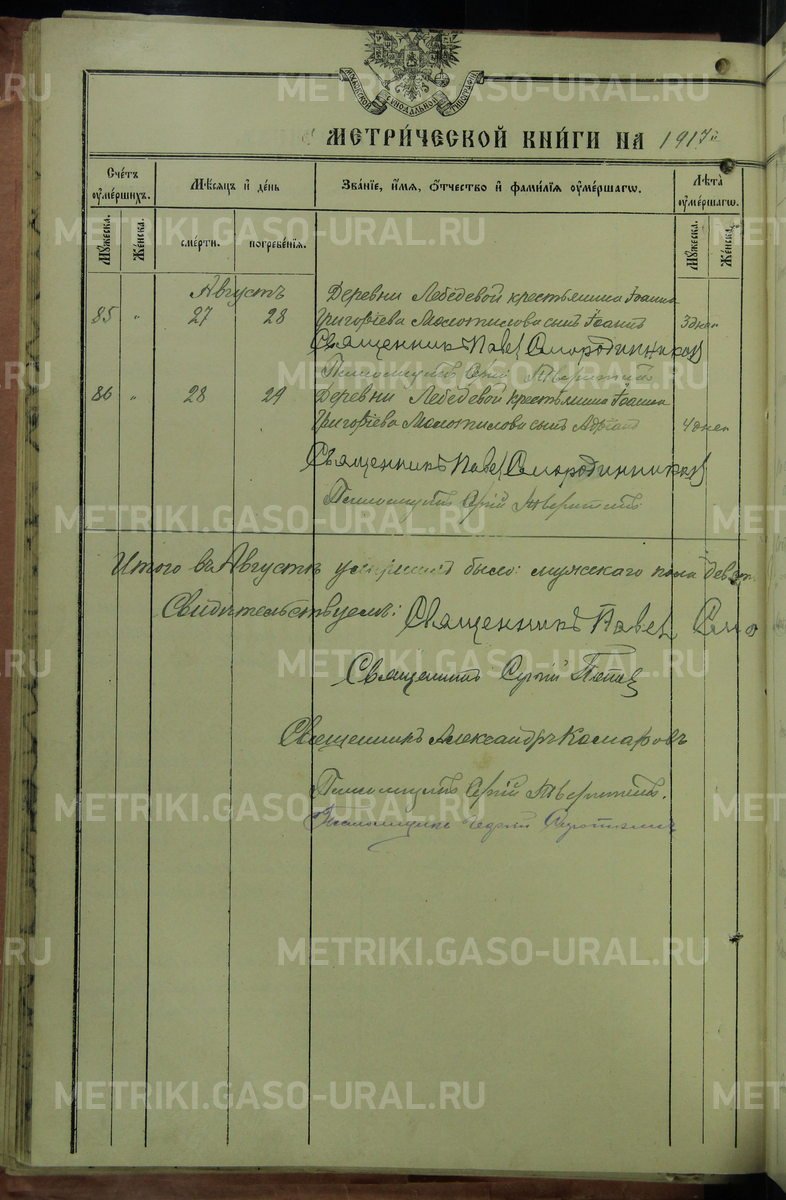 СѴНОДАЛЬНОЙ ТИПОГРАФІИ
МЕТРИ́ЧЕСКОЙ КНИ́ГИ НА 1917й
Сче́тъ оуме́ршихъ.
Мѣсяцъ и де́нь
Зва́нїе, и́мя, о́тчество и фами́лїя оуме́ршагѡ.
Лѣта̀ оуме́ршагѡ.
Мꙋжеска.
Же́нска.
сме́рти.
погребе́нїя.
Мꙋжеска.
Же́нска.
Августъ
Деревни Лебедевой крестьянина Іоанна
85 " 27 28 Григоріева Молотилова сынъ Іоаннъ 3 дней
Священникъ Павел Смородинников
Псаломщикъ Сергій
86 " 28 29 Деревни Лебедевой крестьянина Іоанна
Григоріева Молотилова сынъ Адріанъ 4 дней
Священникъ Павел Смородинников
Псаломщикъ Сергій
Итого въ Августѣ умершихъ было: мужскаго пола
Свидѣтельствуемъ: Священникъ Павел Смо
Священникъ Сергій
Священникъ Александръ Комаровъ
Псаломщикъ Сергій
Псаломщикъ
METRIKI.GASO-URAL.RU